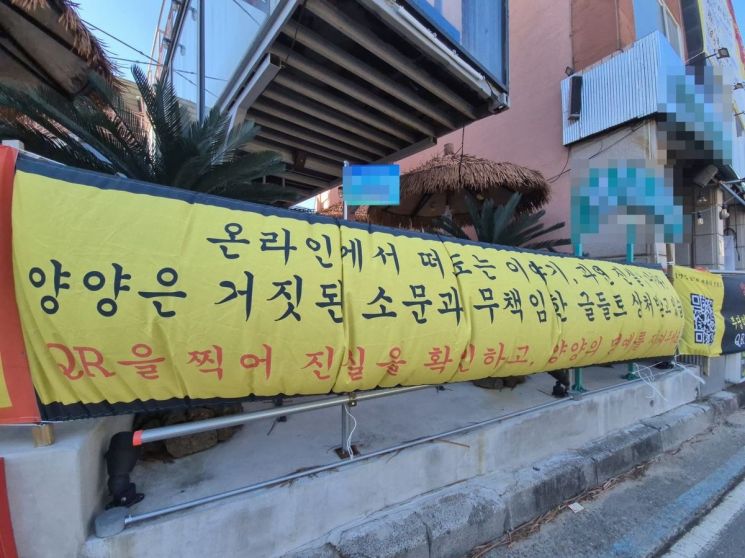 온라인에서 떠도는 이야기, 과연 진실
양양은 거짓된 소문과 무책임한 글들로 상처받고
QR을 찍어 진실을 확인하고, 양양의 명예를
QR